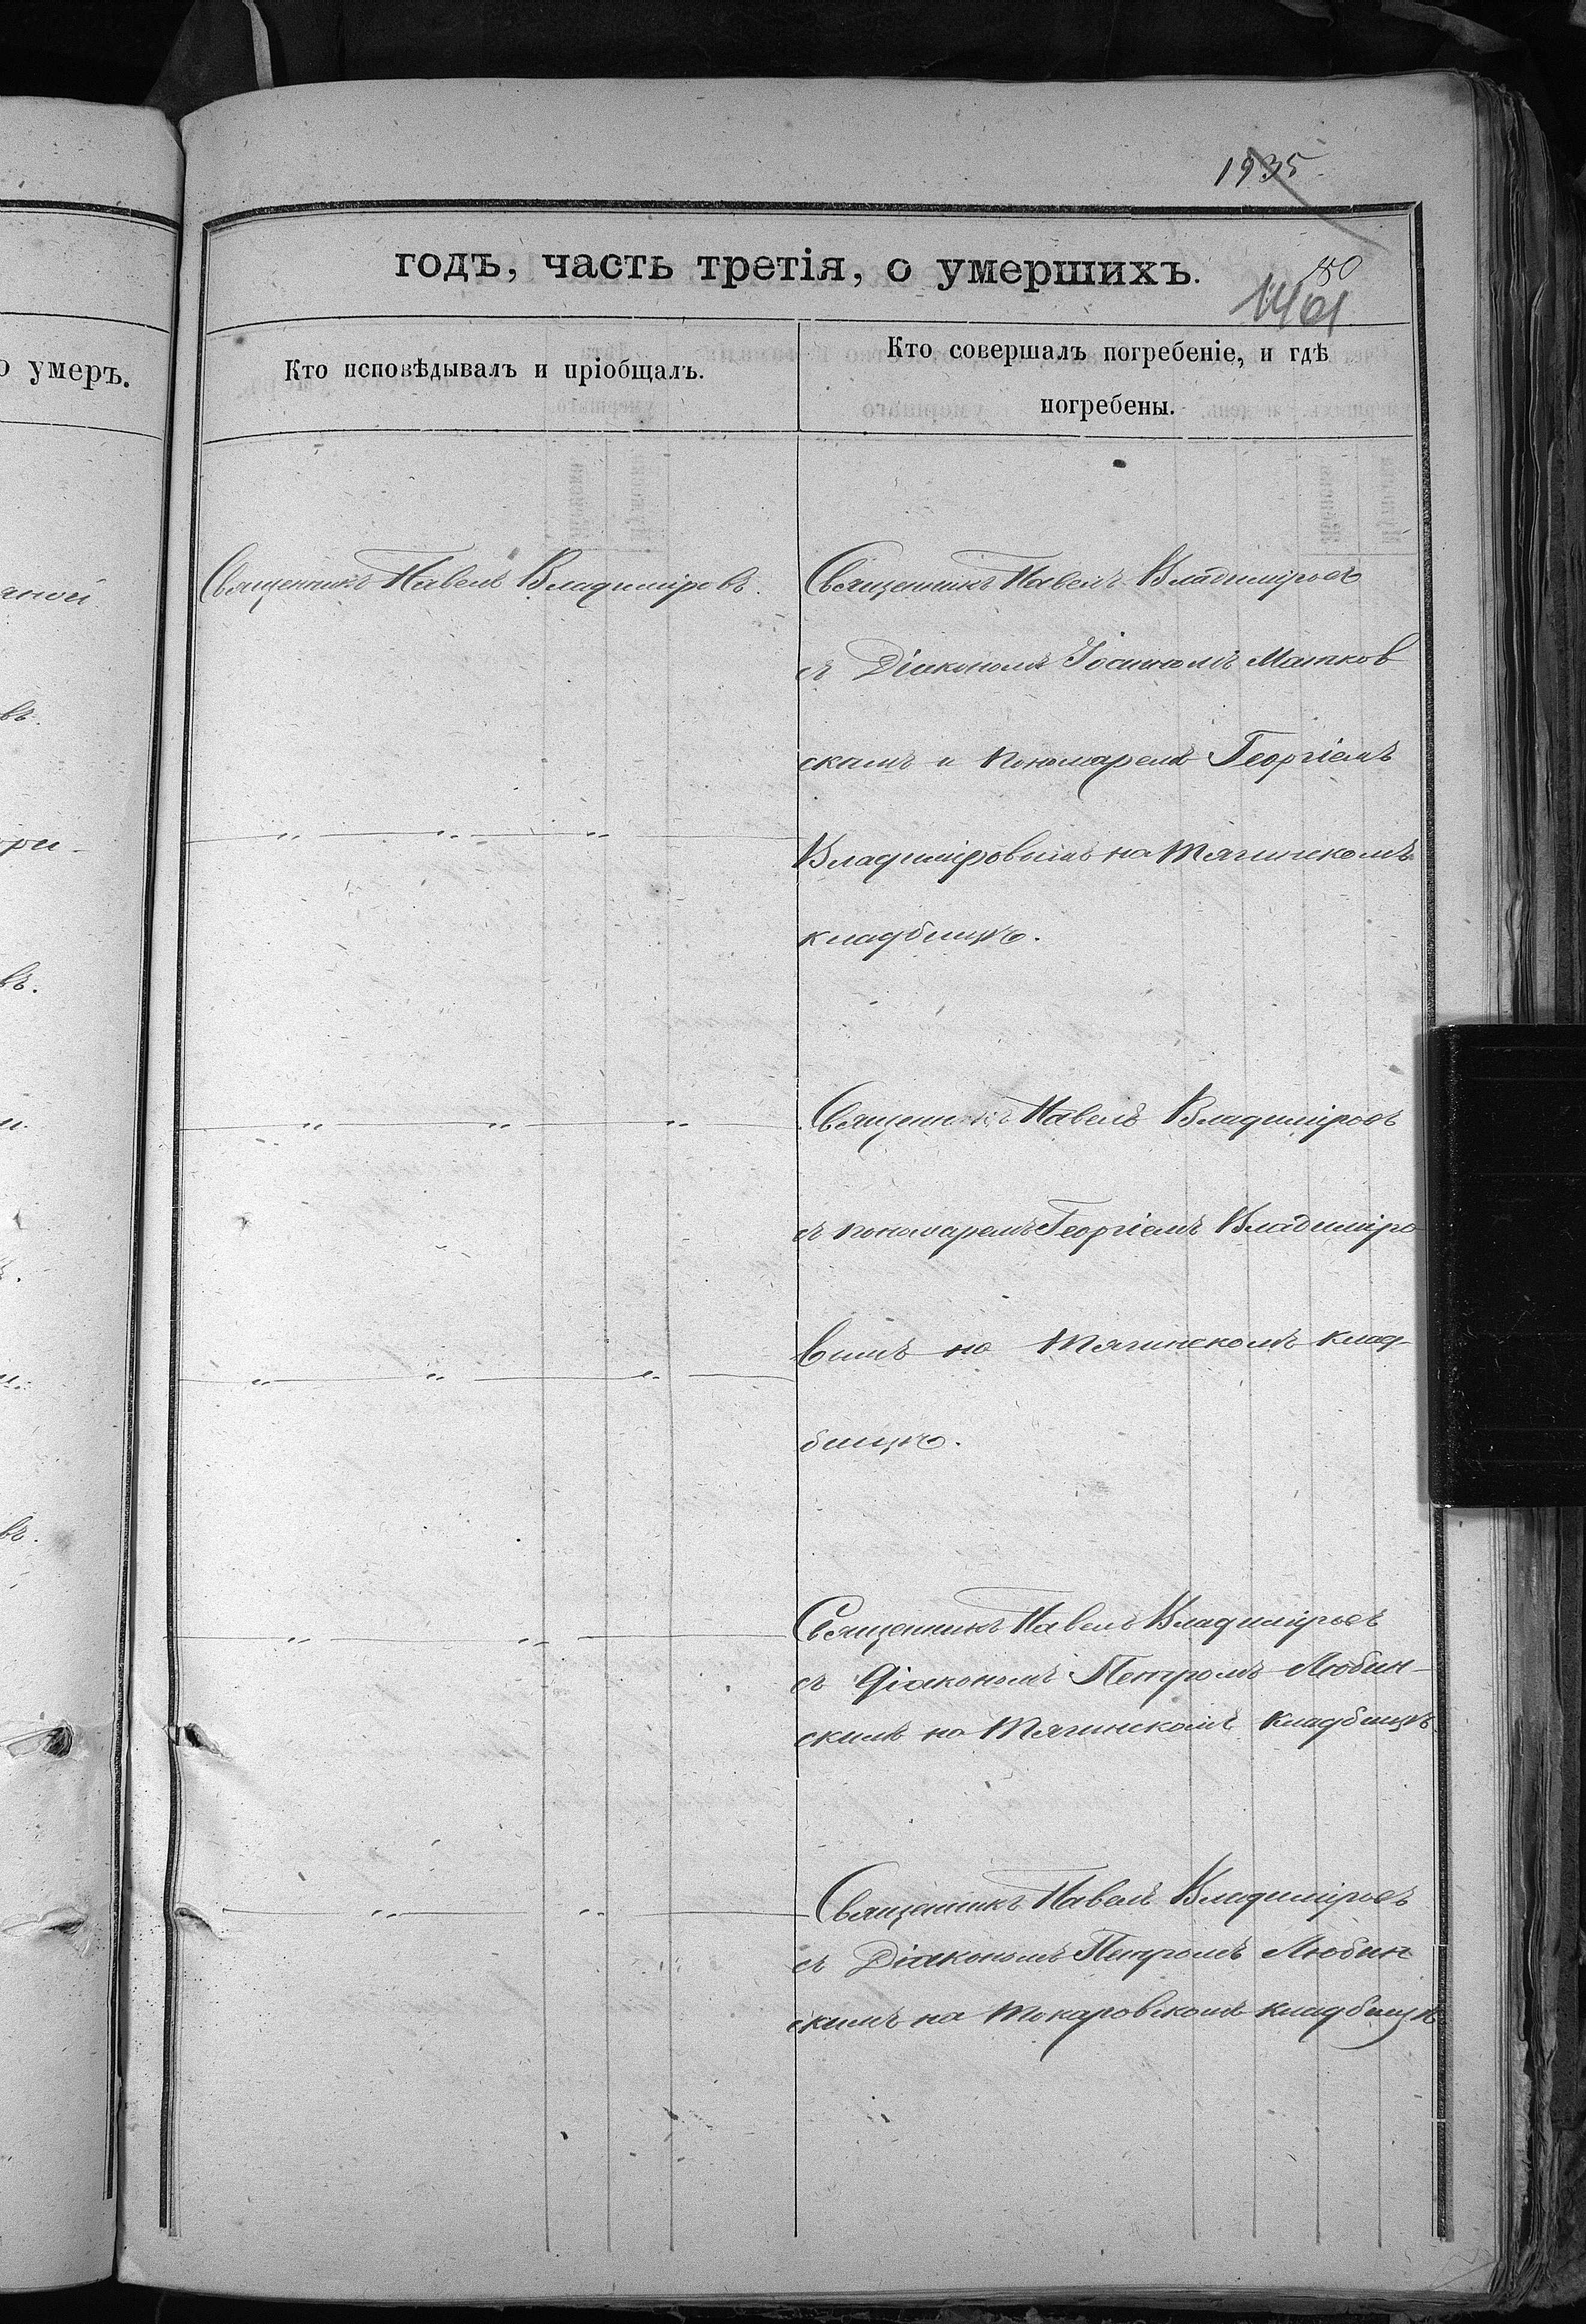 1935.
годъ, часть третія, о умершихъ.
80
1461
о умеръ.
Кто исповѣдывалъ и пріобщалъ.
Кто совершалъ погребеніе, и гдѣ
погребены.
Священникъ Павелъ Владиміровъ.
Священникъ Павелъ Владиміровъ
съ Діакономъ Іосифомъ Матков
скимъ и Пономаремъ Георгіемъ
Владиміровымъ на Тягинскомъ
кладбищѣ.
Священникъ Павелъ Владиміровъ
съ пономаремъ Георгіемъ Владиміро
вымъ на Тягинскомъ клад-
бищѣ.
Священникъ Павелъ Владиміровъ
съ Діакономъ Петромъ Любин-
скимъ на Тягинскомъ кладбищѣ
Священникъ Павелъ Владиміровъ
съ Діакономъ Петромъ Любин
скимъ на Токаровскомъ кладбищѣ